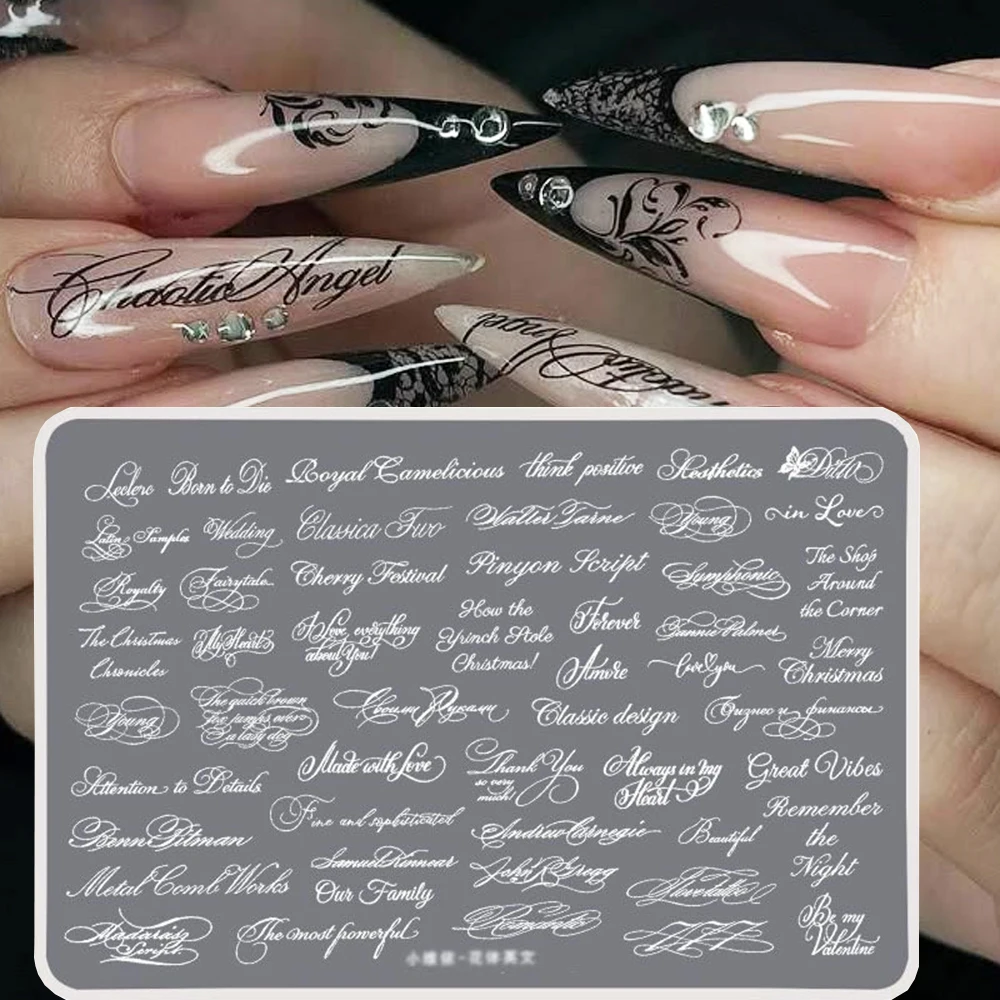 Chaotic Angel
Leclerc
Born to Die
Royal Camelicious
think positive
Aesthetics
Latin
Samples
Wedding
Classica Two
Walter Tarne
Young
in Love
Royalty
Fairytale
Cherry Festival
Pinyon Script
Symphonic
The Shop
Around
the Corner
The Christmas
Chronicles
My Heart
I Love everything
about You!
How the
Grinch Stole
Christmas!
Forever
Amore
Fannie Palmer
love you
Merry
Christmas
Young
The quick brown
fox jumps over
a lazy dog
Своими Руками
Classic design
Бизнес и финансы
Attention to Details
Made with Love
Thank You
so very
much!
Always in my
Heart
Great Vibes
Fine and sophisticated
Remember
the
Night
Benn Pitman
Andrew Carnegie
Beautiful
Metal Comb Works
Samuel Kinnear
Our Family
John R Gregg
I love tattoo
Madarasz
Script
The most powerful
Romantic
Be my
Valentine
小维侬-花体英文